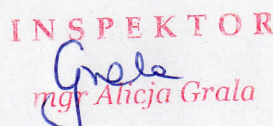 INSPEKTOR
Grala
mgr Alicja Grala